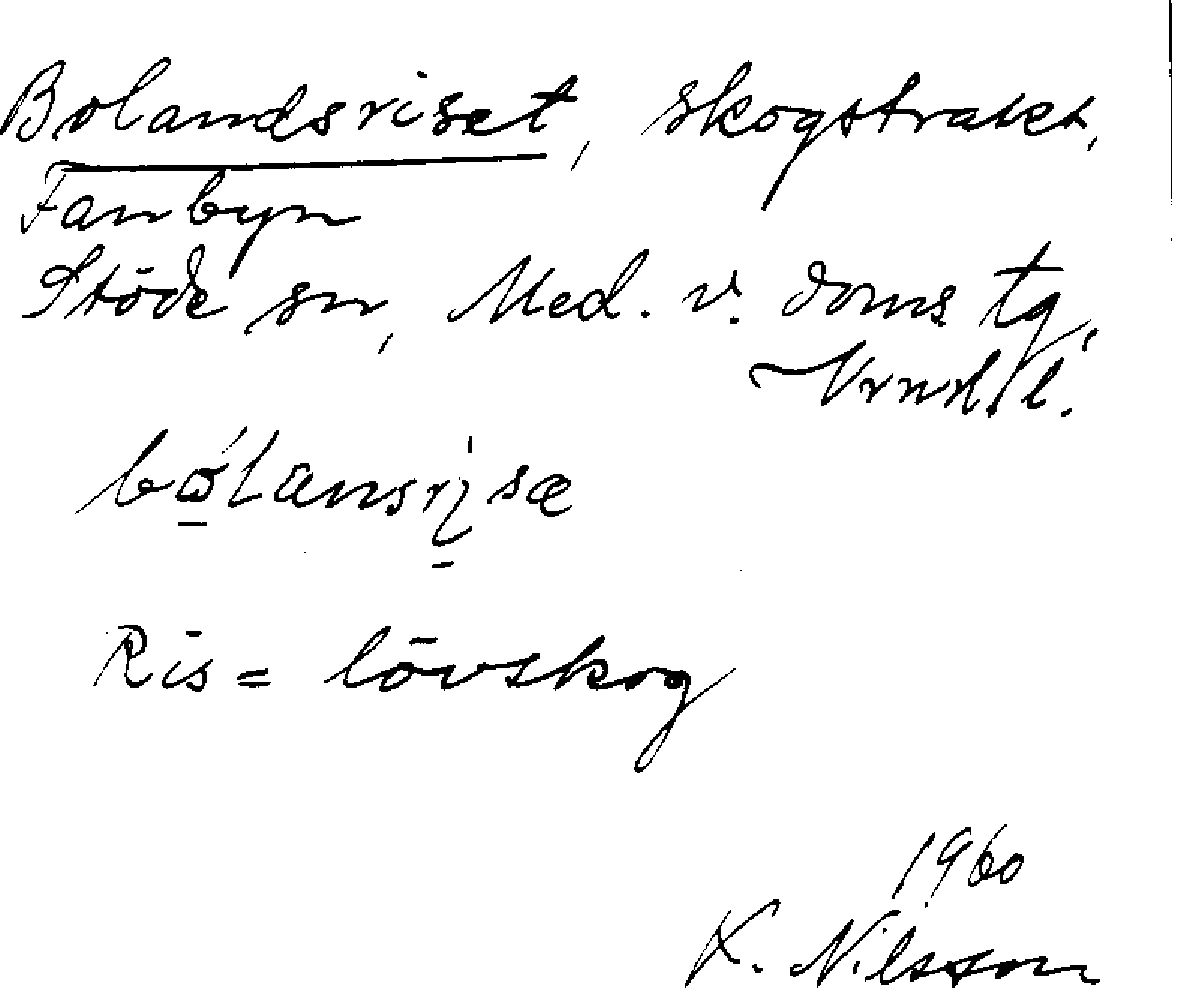 Bolandsriset, skogstrakt,
Fanbyn
Stöde sn, Med. v. doms tg,
Vrnrl. l.
Ris = lövskog
1960
K. Nilsson